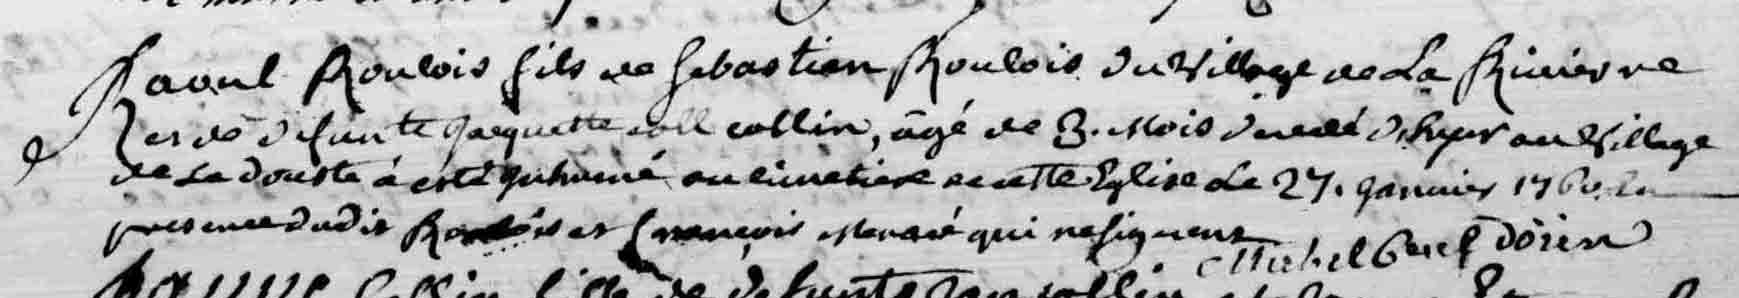 Raoul Roulois fils de Sebastien Roulois du Village de La Riviere
et de defunte Jacquette collin, âgé de 3. Mois decedé d'hyer au Village
de La Douste a esté Inhumé au cimetiere de cette Eglise Le 27. Janvier 1760. En
presence dudit Roulois et François qui ne signent
Michel Dorin
collin fille de defunte collin